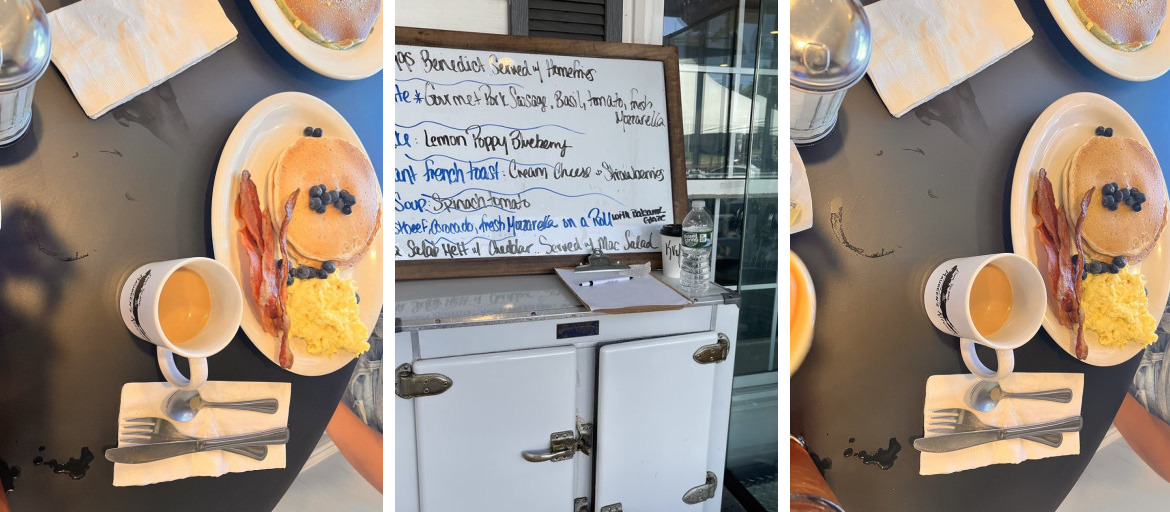 Benedict Served w/ Homefries
* Gourmet Pork Sausage, Basil, tomato, fresh
Mozzarella
: Lemon Poppy Blueberry
french toast: Cream Cheese Strawberries
Soup: Spinach tomato
Avocado, fresh Mozzarella on a Roll with Balsamic
Glaze
Salad Melt w/ Cheddar.. Served w/ Mac Salad